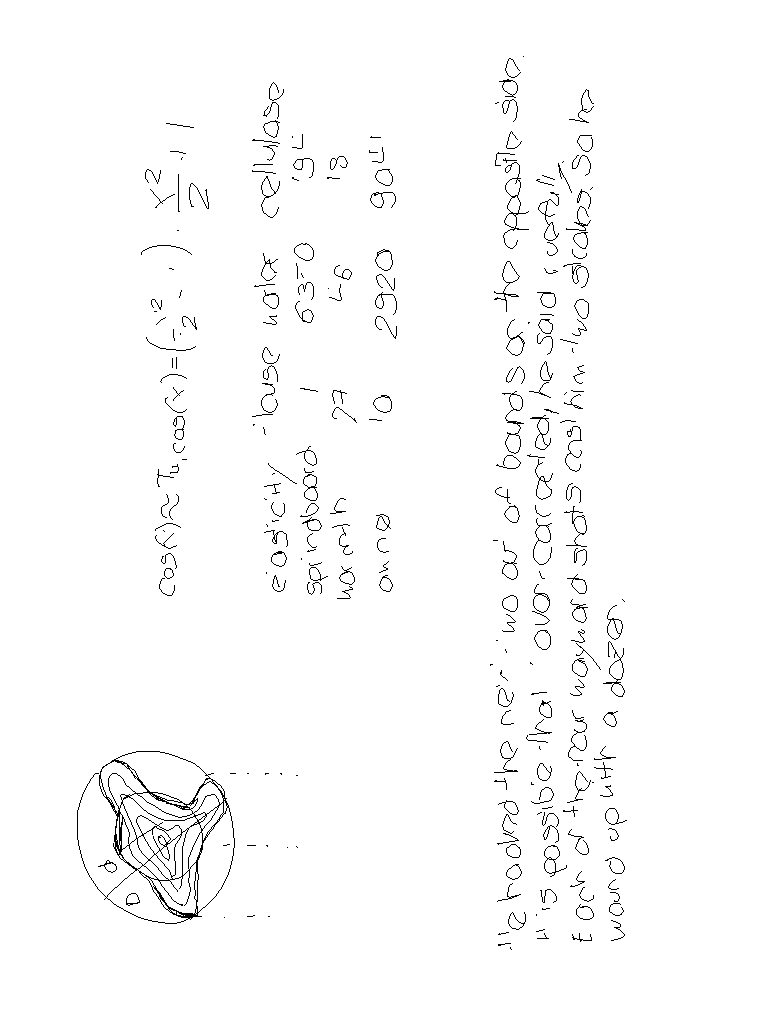 cos(x) ≈ T4, cos(x) = ( x²/2 - 1 ) · x²/2 · 1
elasticity louse water cellulase
springboard 1 6370 194
warmth 77 46 18
10 2920 9041
D
He hooked the next two out of bounds on the opposite side.
"It is possible that I over-corrected," he said ruefully.
Each of the four wayward shots cost him two strokes. So he
wound up with a dozen.